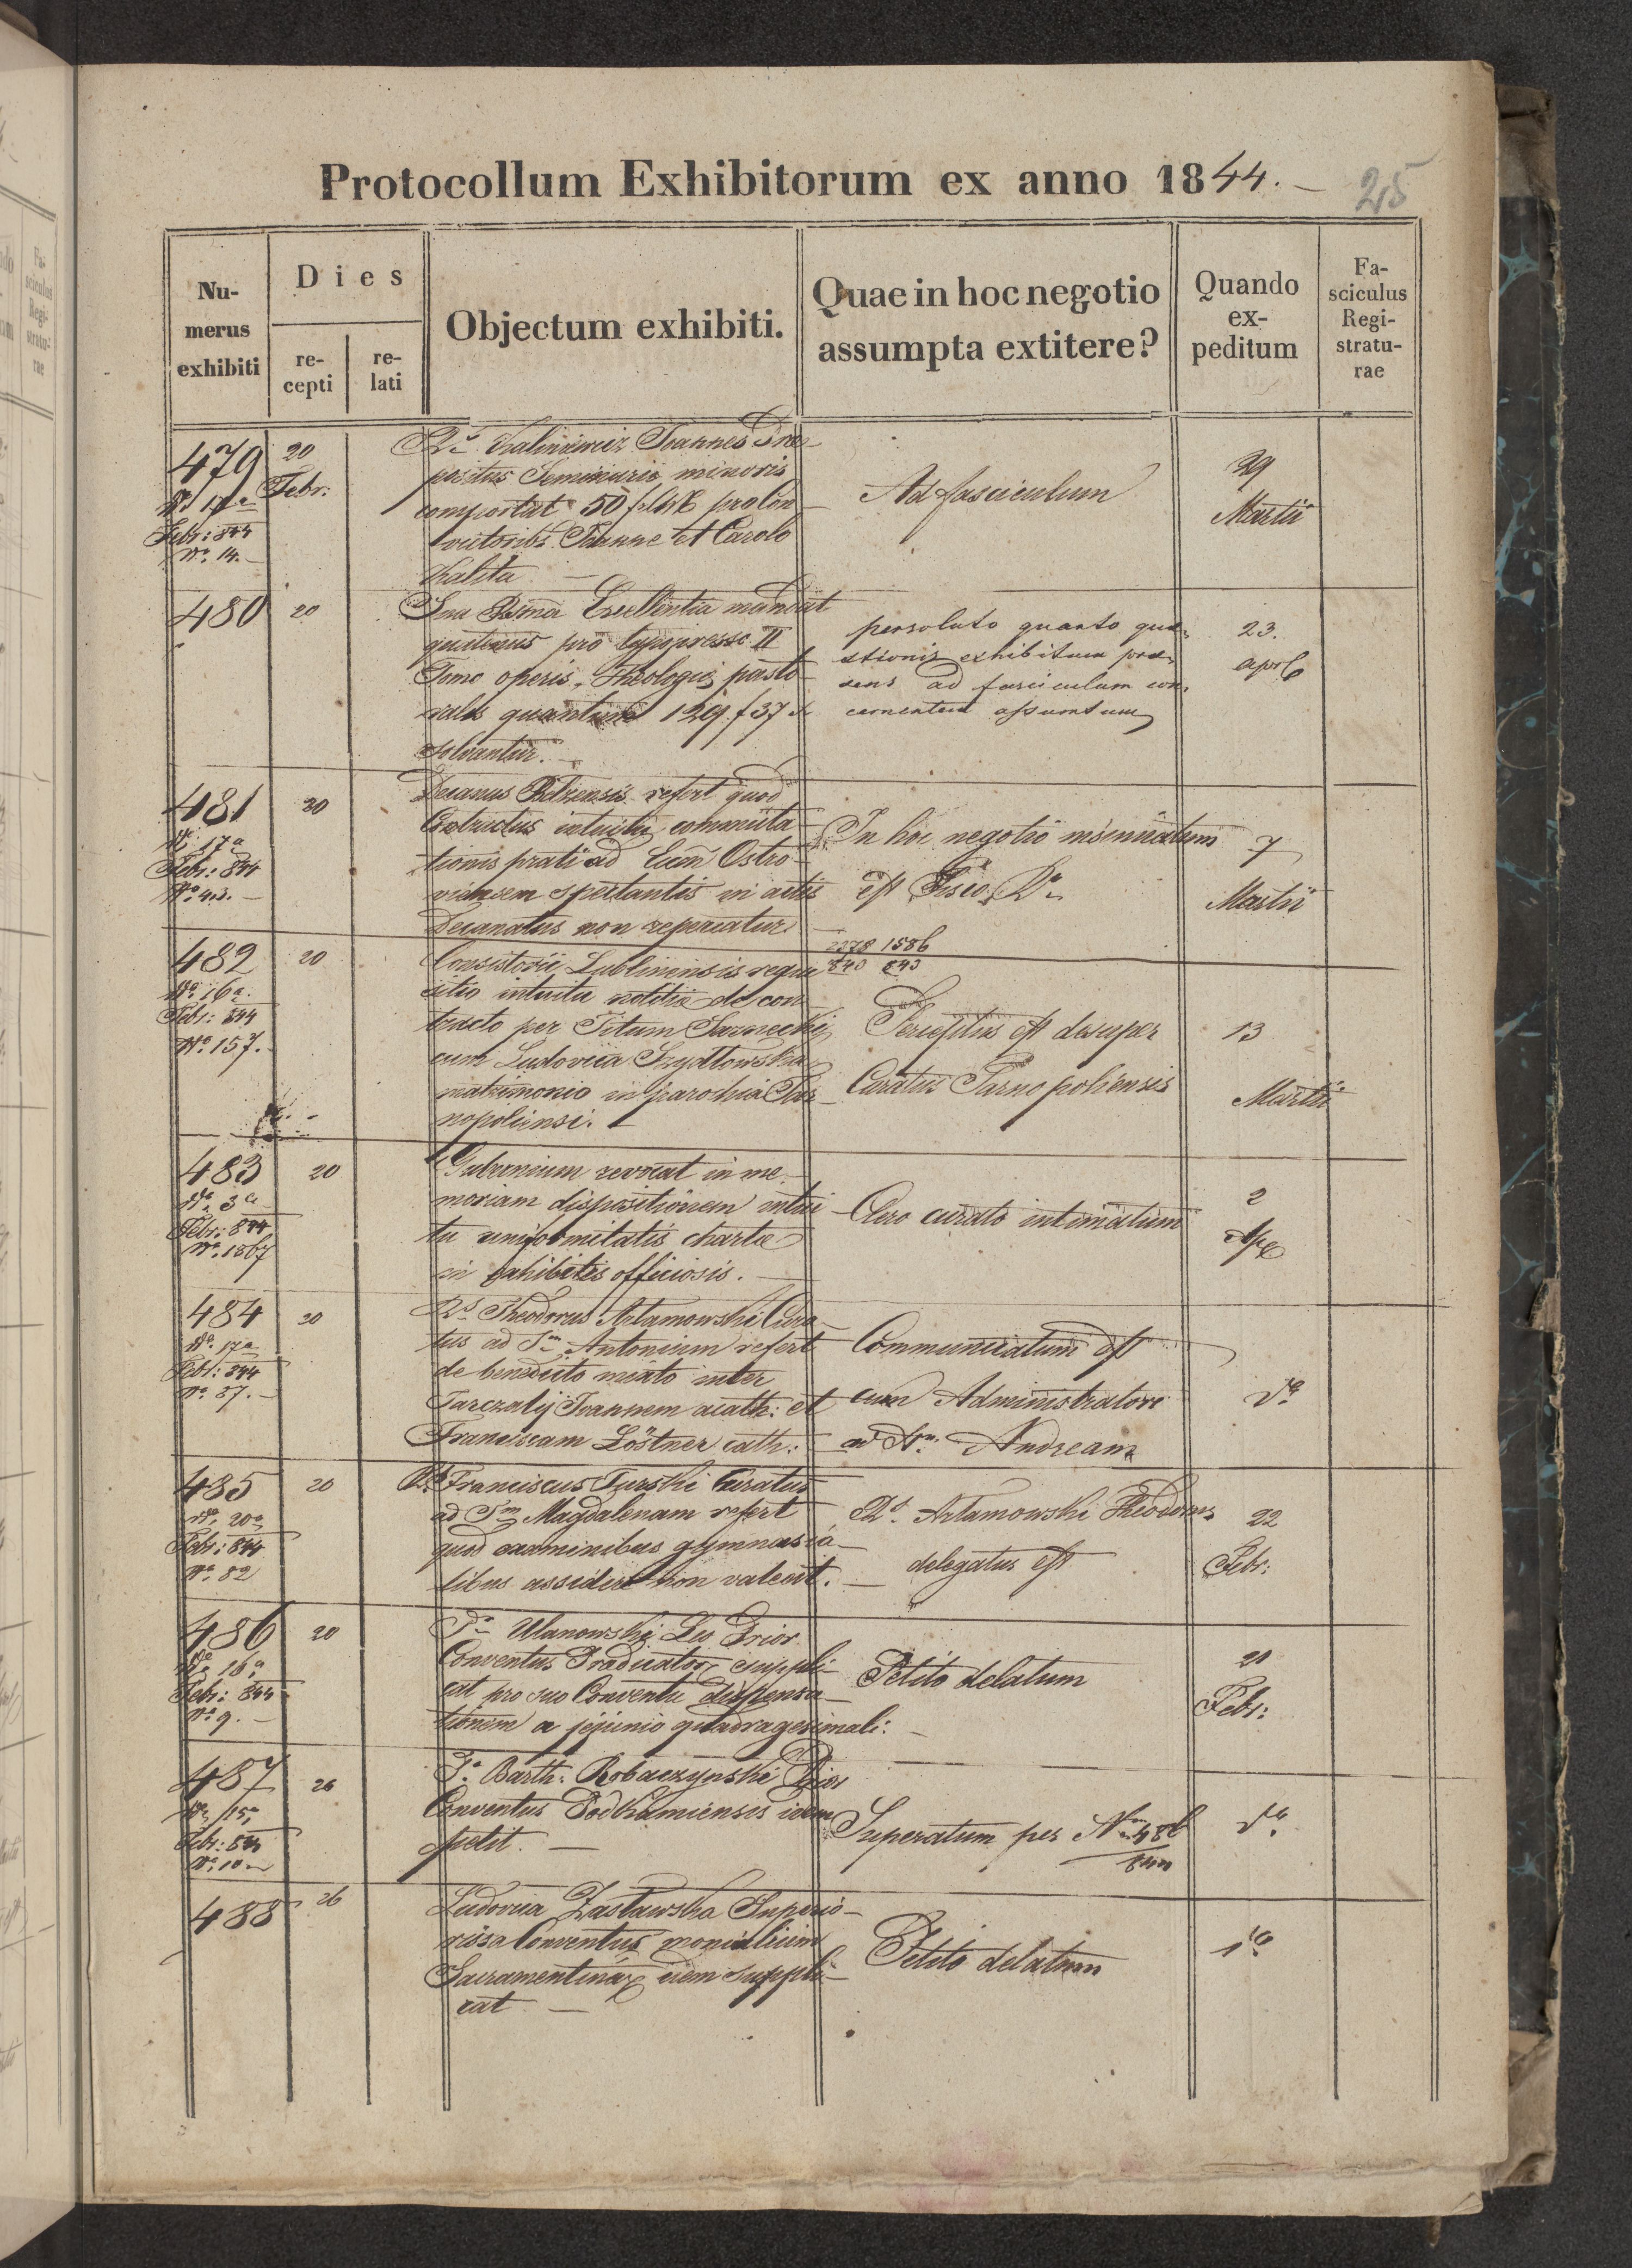 Protocollum Exhibitorum ex anno 1844. —
25
Nu-
merus
exhibiti
Dies
re-
cepti
re-
lati
Objectum exhibiti.
Quae in hoc negotio
assumpta extitere?
Quando
ex-
peditum
Fa-
sciculus
Regi-
stratu-
rae
479
Febr: 844
No. 14. —
20
Febr.
Kalinievicz Joannes Prae-
positus Seminarii minoris
comportat 50 f pro Con-
victoribs Joanne et Carolo
Kalita —
Ad fasciculum
29
Martii
480
20
Sua Excellentia mandat
quatenus pro II
Tomo operis Theologiae pasto-
ralis quantum 129 f 37 x
solvantur. —
persoluto quanto quae-
stionis exhibitum prae-
sens ad fasciculum con-
assumtum
23.
apr
481
dto 17a
Febr: 844
No. 43. —
20
Decanus refert quod
intuitu commuta-
tionis prati ad Ostro-
viensem spectantis in actis
Decanatus non reperiatur
In hoc negotio insinuatum
est Fisco Ro
7
Martii
482
dto 16a
Febr: 844
No. 157.
20
Consistorii Lublinensis requi-
sitio intuitu notitiae de con-
tracto per Titum
cum Ludovica Szydłowska
matrimonio in parochia Tar-
nopoliensi.
2278 1586
840 843
est desuper
Curatus Tarnopoliensis
13
Martii
483
dto 3a
Febr: 844
No. 1867
20
Gubernium revocat in me-
moriam dispositionem intui-
tu uniformitatis chartae
in exhibitis officiosis. —
Clero curato intimatum
2
Apr
484
dto 17a
Febr: 844
No. 37. —
20
Rs Theodorus Artamowski Cura-
tus ad Sm Antonium refert
de benedicto mixto inter
Tarczaly Joannem acath: et
Franciscam Löstner cath:
Communicatum est
cum Administratore
ad Sm. Andream
dto
485
dto 20a
Febr: 844
No. 82
20
Rs. Franciscus Turski Curatus
ad Sm Magdalenam refert
quod examinibus gymnasia-
libus assidere non valeat. —
Rs. Artamowski Theodorus
delegatus est
22
Febr:
486
dto 16a
Febr: 844
No. 9. —
20
Ulanowski Leo Prior
Conventus Praedicator suppli-
cat pro suo Conventu dispensa-
tionem a jejunio quadragesimali: —
Petito delatum
21
Febr:
487
dto 15a
Febr: 844
No. 10 —
26
Barth: Robaczynski Prior
Conventus Podkamiensis idem
petit. —
Superatum per Nm 486
844
dto
488
26
Ludovica Zasławska Superio-
rissa Conventus monialium
Sacramentinar idem suppli-
cat —
Petito delatum
dto